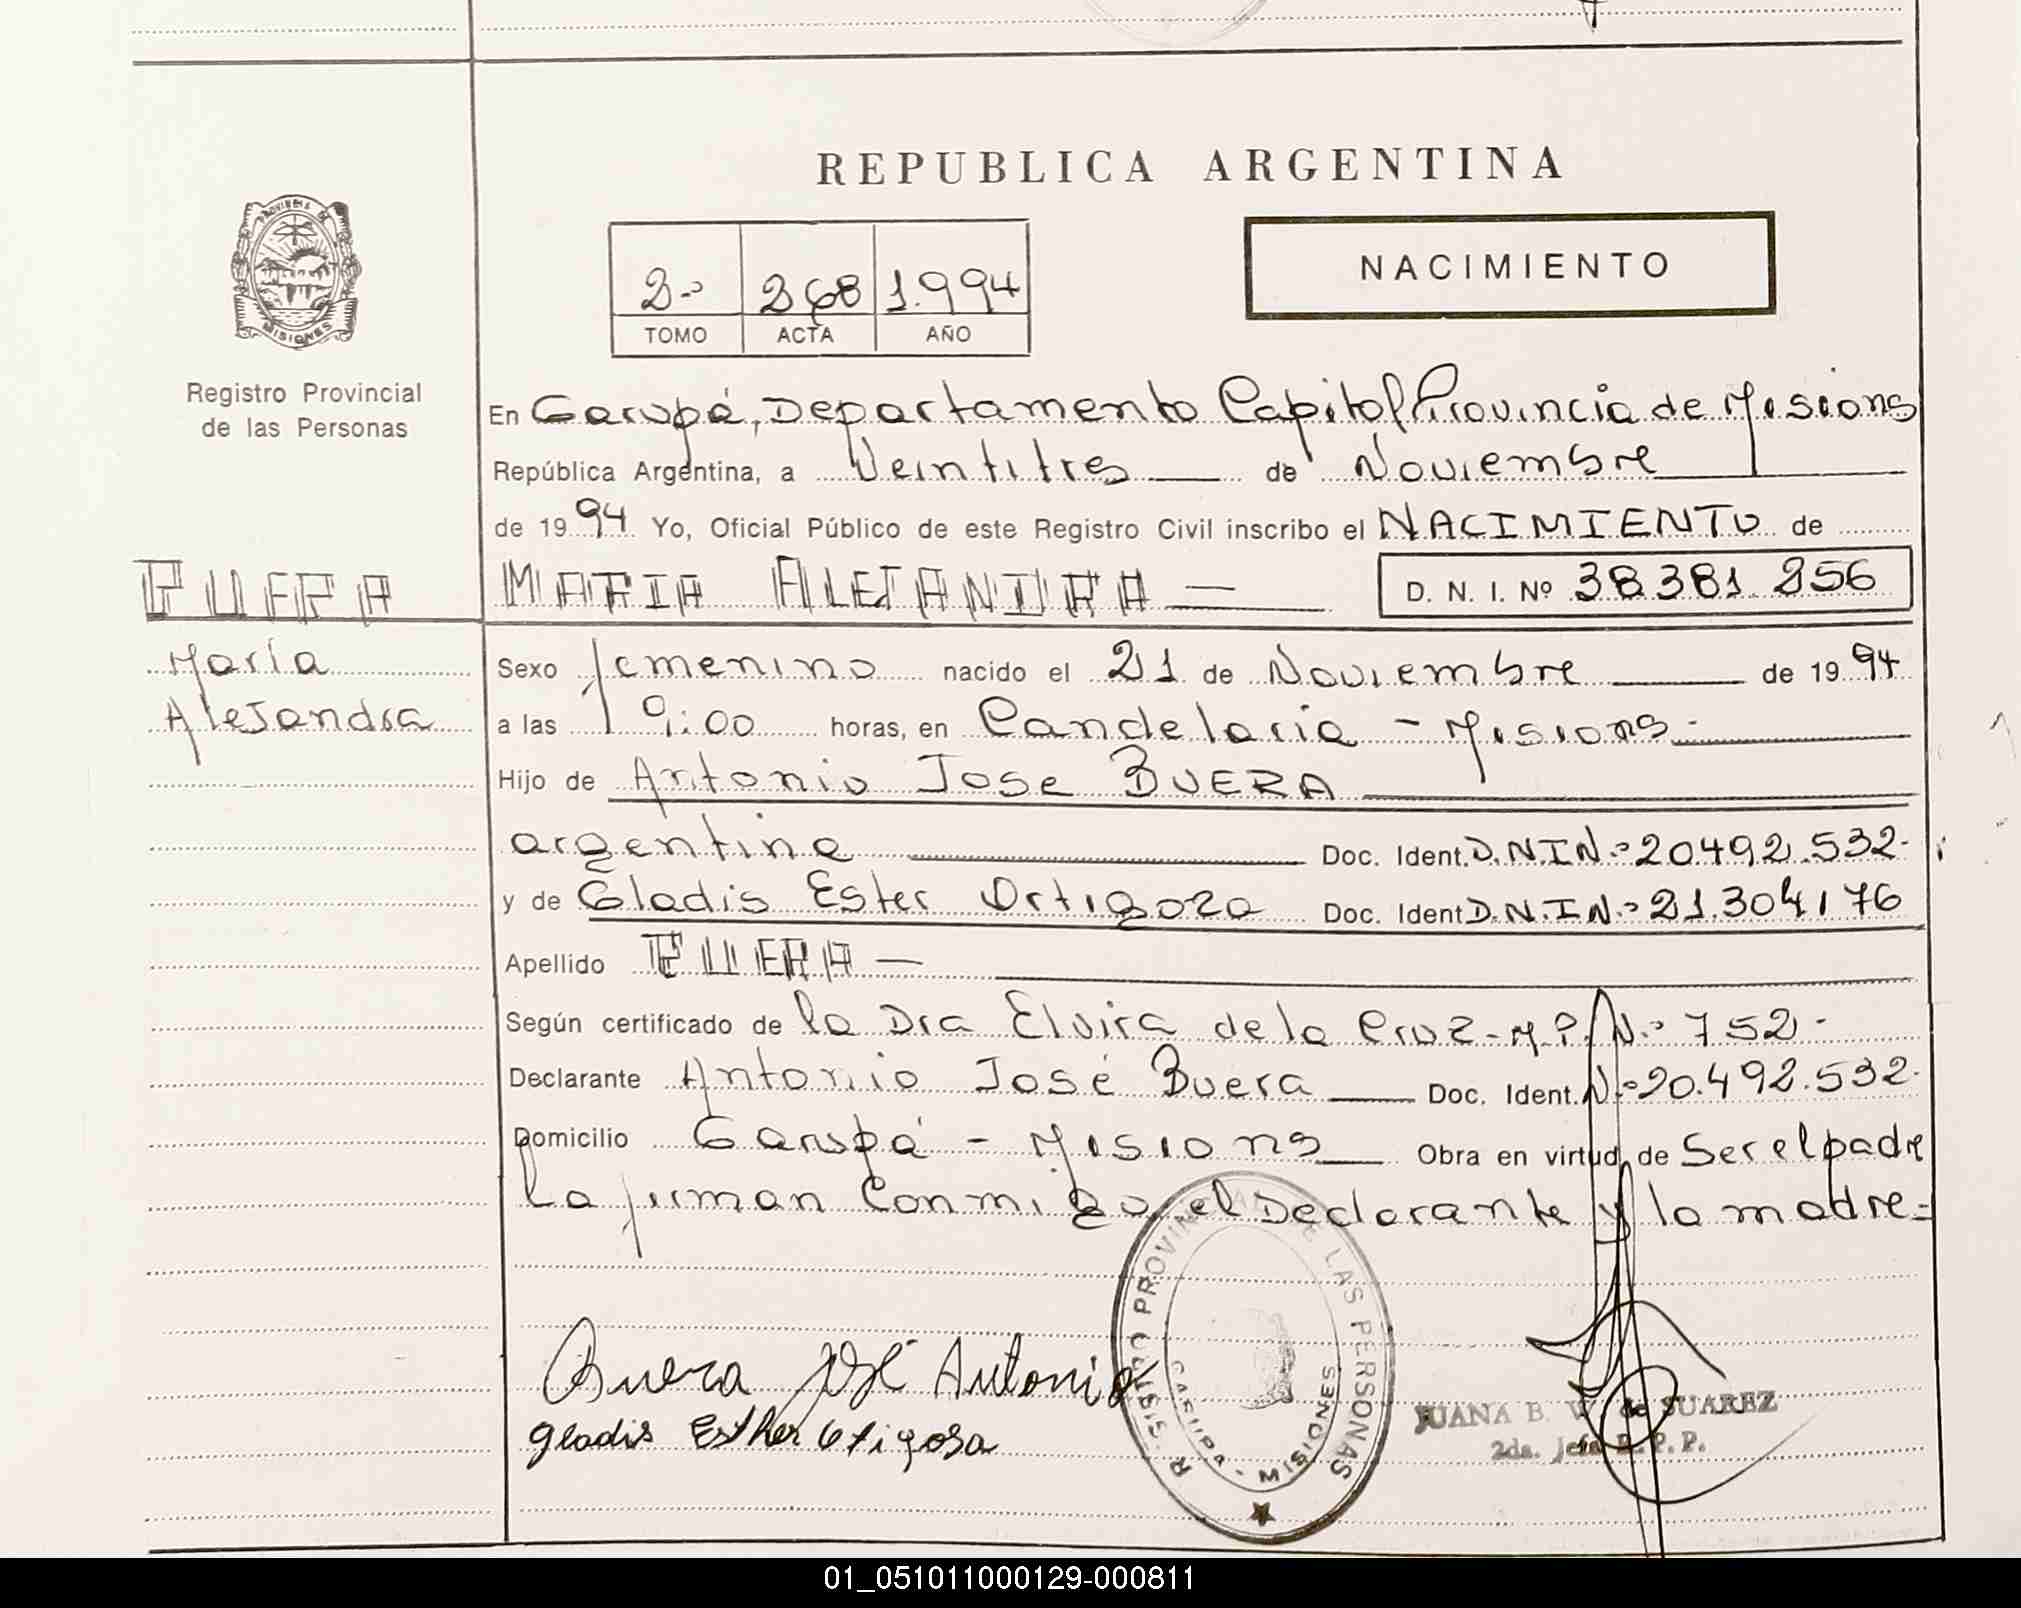 REPUBLICA ARGENTINA
PROVINCIA DE
MISIONES
Registro Provincial
de las Personas
2º 268 1.994
TOMO ACTA AÑO
NACIMIENTO
En Garupá, Departamento Capital Provincia de Misiones
República Argentina, a Veintitres de Noviembre
de 1994 Yo, Oficial Público de este Registro Civil inscribo el NACIMIENTO de
BUERA MARIA ALEJANDRA — D. N. I. Nº 38.381.256
María
Alejandra
Sexo femenino nacido el 21 de Noviembre de 1994
a las 19:00 horas, en Candelaria - Misiones
Hijo de Antonio Jose BUERA
argentina Doc. Ident. D.N.I Nº 20492.532
y de Gladis Ester Ortigoza Doc. Ident D.N.I Nº 21.304176
Apellido BUERA —
Según certificado de la Dra Elvira de la Cruz - M.P. Nº 752-
Declarante Antonio José Buera Doc. Ident. Nº 20.492.532.
Domicilio Garupá - Misiones Obra en virtud de Ser el padre
La firman Conmigo, el Declarante y la madre=
Buera José Antonio
Gladis Esther Ortigosa
REGISTRO PROVINCIAL DE LAS PERSONAS
GARUPA - MISIONES
JUANA B. W. de SUAREZ
2da. Jefa R.P.P.
01_051011000129-000811